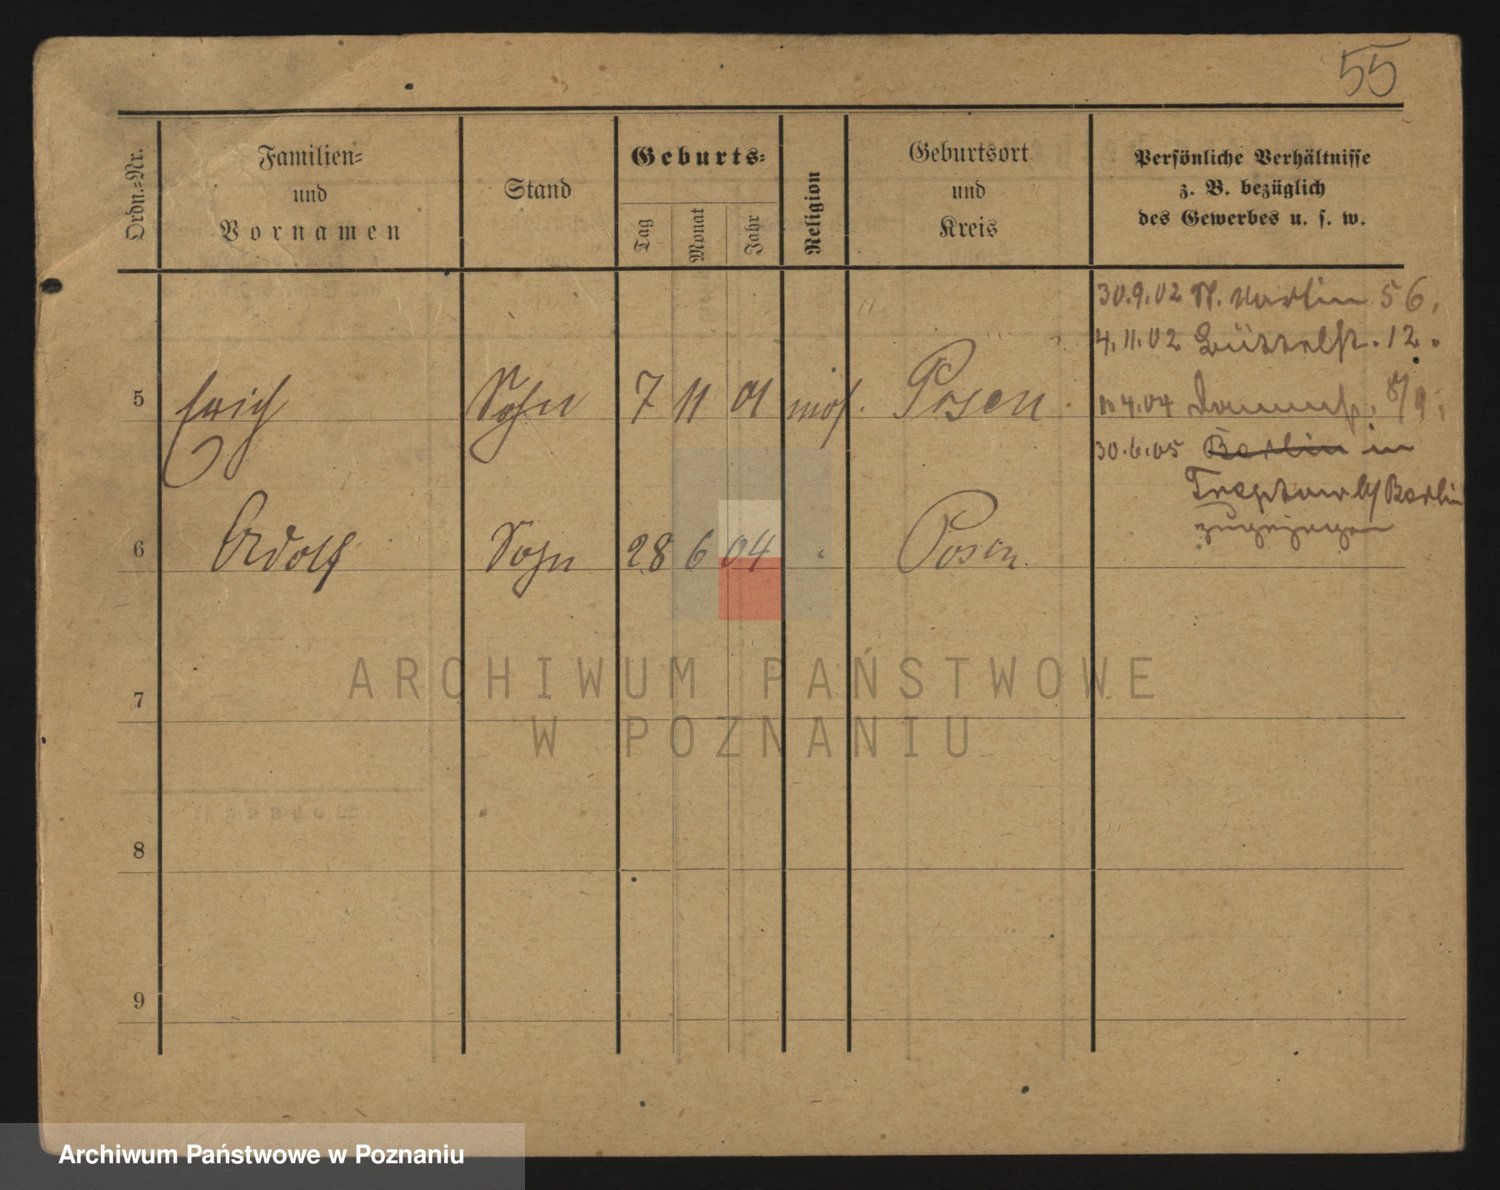 55
Ordn.-Nr.
Familien-
und
Vornamen
Stand
Geburts-
Tag
Monat
Jahr
Religion
Geburtsort
und
Kreis
Persönliche Verhältnisse
z. B. bezüglich
des Gewerbes u. s. w.
30.9.02 St. Martin 56.
4.11.02 Büttelst. 12.
5 Erich Sohn 7 11 01 mos. Posen
4.04
30.6.05 Berlin in
Treptow b/ Berlin
zugezogen
6 Adolf Sohn 28 6 04 " Posen
7
8
9
ARCHIWUM PAŃSTWOWE
W POZNANIU
Archiwum Państwowe w Poznaniu